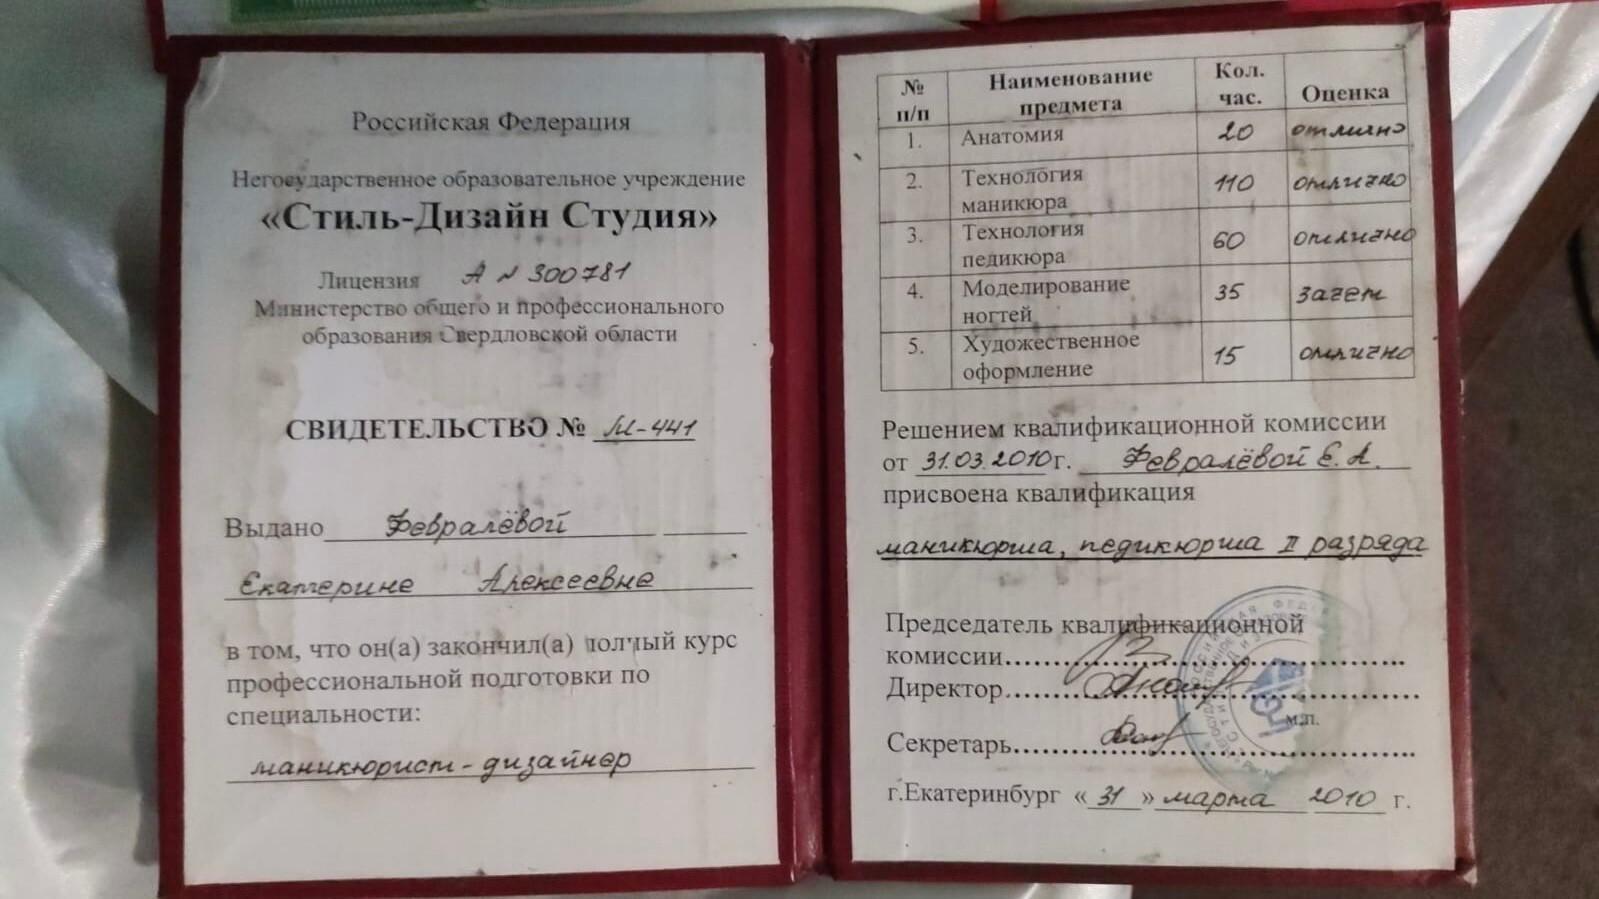 Российская Федерация
Негосударственное образовательное учреждение
«Стиль-Дизайн Студия»
Лицензия А № 300781
Министерство общего и профессионального
образования Свердловской области
СВИДЕТЕЛЬСТВО № М-441
Выдано Февралёвой
Екатерине Алексеевне
в том, что он(а) закончил(а) полный курс
профессиональной подготовки по
специальности:
маникюрист-дизайнер
№ п/п Наименование предмета Кол. час. Оценка
1. Анатомия 20 отлично
2. Технология маникюра 110 отлично
3. Технология педикюра 60 отлично
4. Моделирование ногтей 35 зачет
5. Художественное оформление 15 отлично
Решением квалификационной комиссии
от 31.03.2010г. Февралёвой Е.А.
присвоена квалификация
маникюрша, педикюрша II разряда
Председатель квалификационной
комиссии
Директор
м.п.
Секретарь
г.Екатеринбург «31» марта 2010 г.